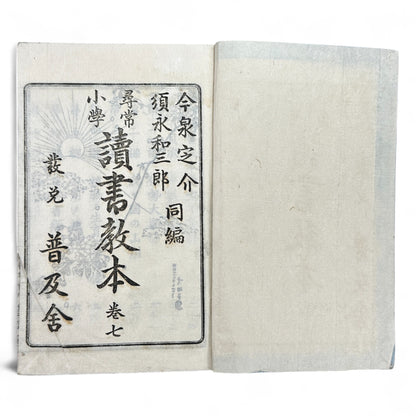 今泉定介
須永和三郎 同編
尋常
小學
讀書教本 巻七
發兌 普及舍